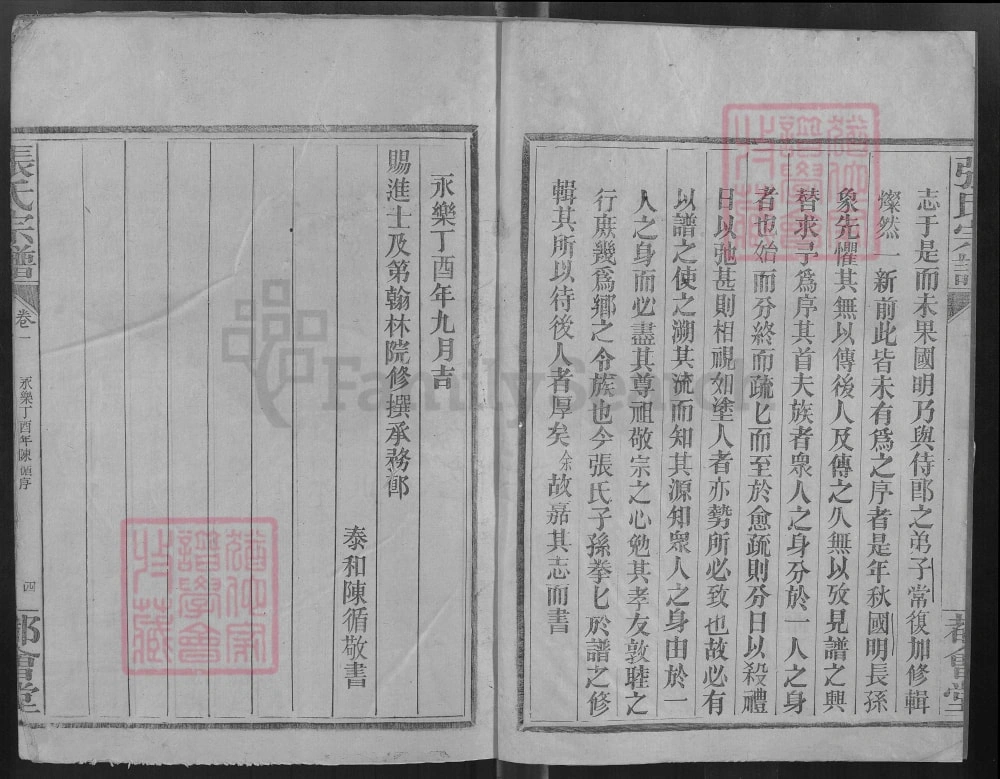 張氏宗譜
都會堂
志于是而未果國明乃與侍郎之弟子常復加修輯
燦然一新前此皆未有為之序者是年秋國明長孫
象先懼其無以傳後人及傳之久無以攷見譜之興
替求予為序其首夫族者眾人之身分於一人之身
者也始而分終而疏匕而至於愈疏則分日以殺禮
日以弛甚則相視如塗人者亦勢所必致也故必有
以譜之使之溯其流而知其源知眾人之身由於一
人之身而必盡其尊祖敬宗之心勉其孝友敦睦之
行庶幾爲鄉之令族也今張氏子孫拳匕於譜之修
輯其所以待後人者厚矣余故嘉其志而書
永樂丁酉年九月吉
賜進士及第翰林院修撰承務郎
泰和陳循敬書
張氏宗譜
卷一
永樂丁酉年陳循序
四
都會堂
FamilySearch